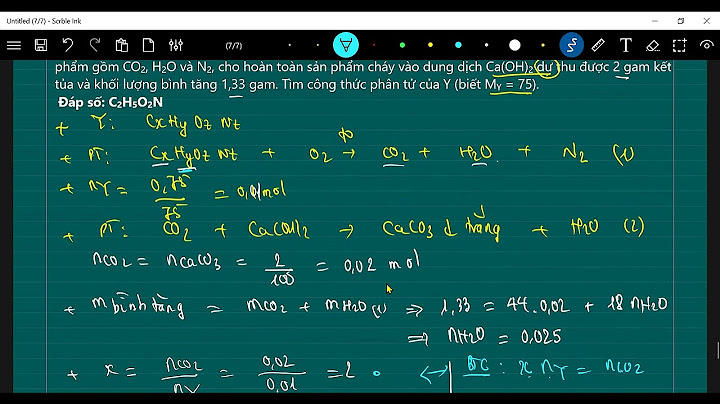 Untitled (7/7) - Scrble Ink
(7/7)
phẩm gồm CO₂, H₂O và N₂, cho hoàn toàn sản phẩm cháy vào dung dịch Ca(OH)₂ dư thu được 2 gam kết
tủa và khối lượng bình tăng 1,33 gam. Tìm công thức phân tử của Y (biết M_Y = 75).
Đáp số: C₂H₅O₂N
+ Y: CxHyOzNt
+ PT: CxHyOzNt + O₂ →(t°) CO₂ + H₂O + N₂ (1)
+ nY = 0,75/75 = 0,01 mol
+ PT: CO₂ + Ca(OH)₂ → CaCO₃ ↓ trắng + H₂O (2)
nCO₂ = nCaCO₃ = 2/100 = 0,02 mol
+ m bình tăng = mCO₂ + mH₂O(1) ⇒ 1,33 = 44.0,02 + 18 nH₂O
⇒ nH₂O = 0,025
+ x = nCO₂/nY = 0,02/0,01 = 2 ⟷ BTC: x.nY = nCO₂